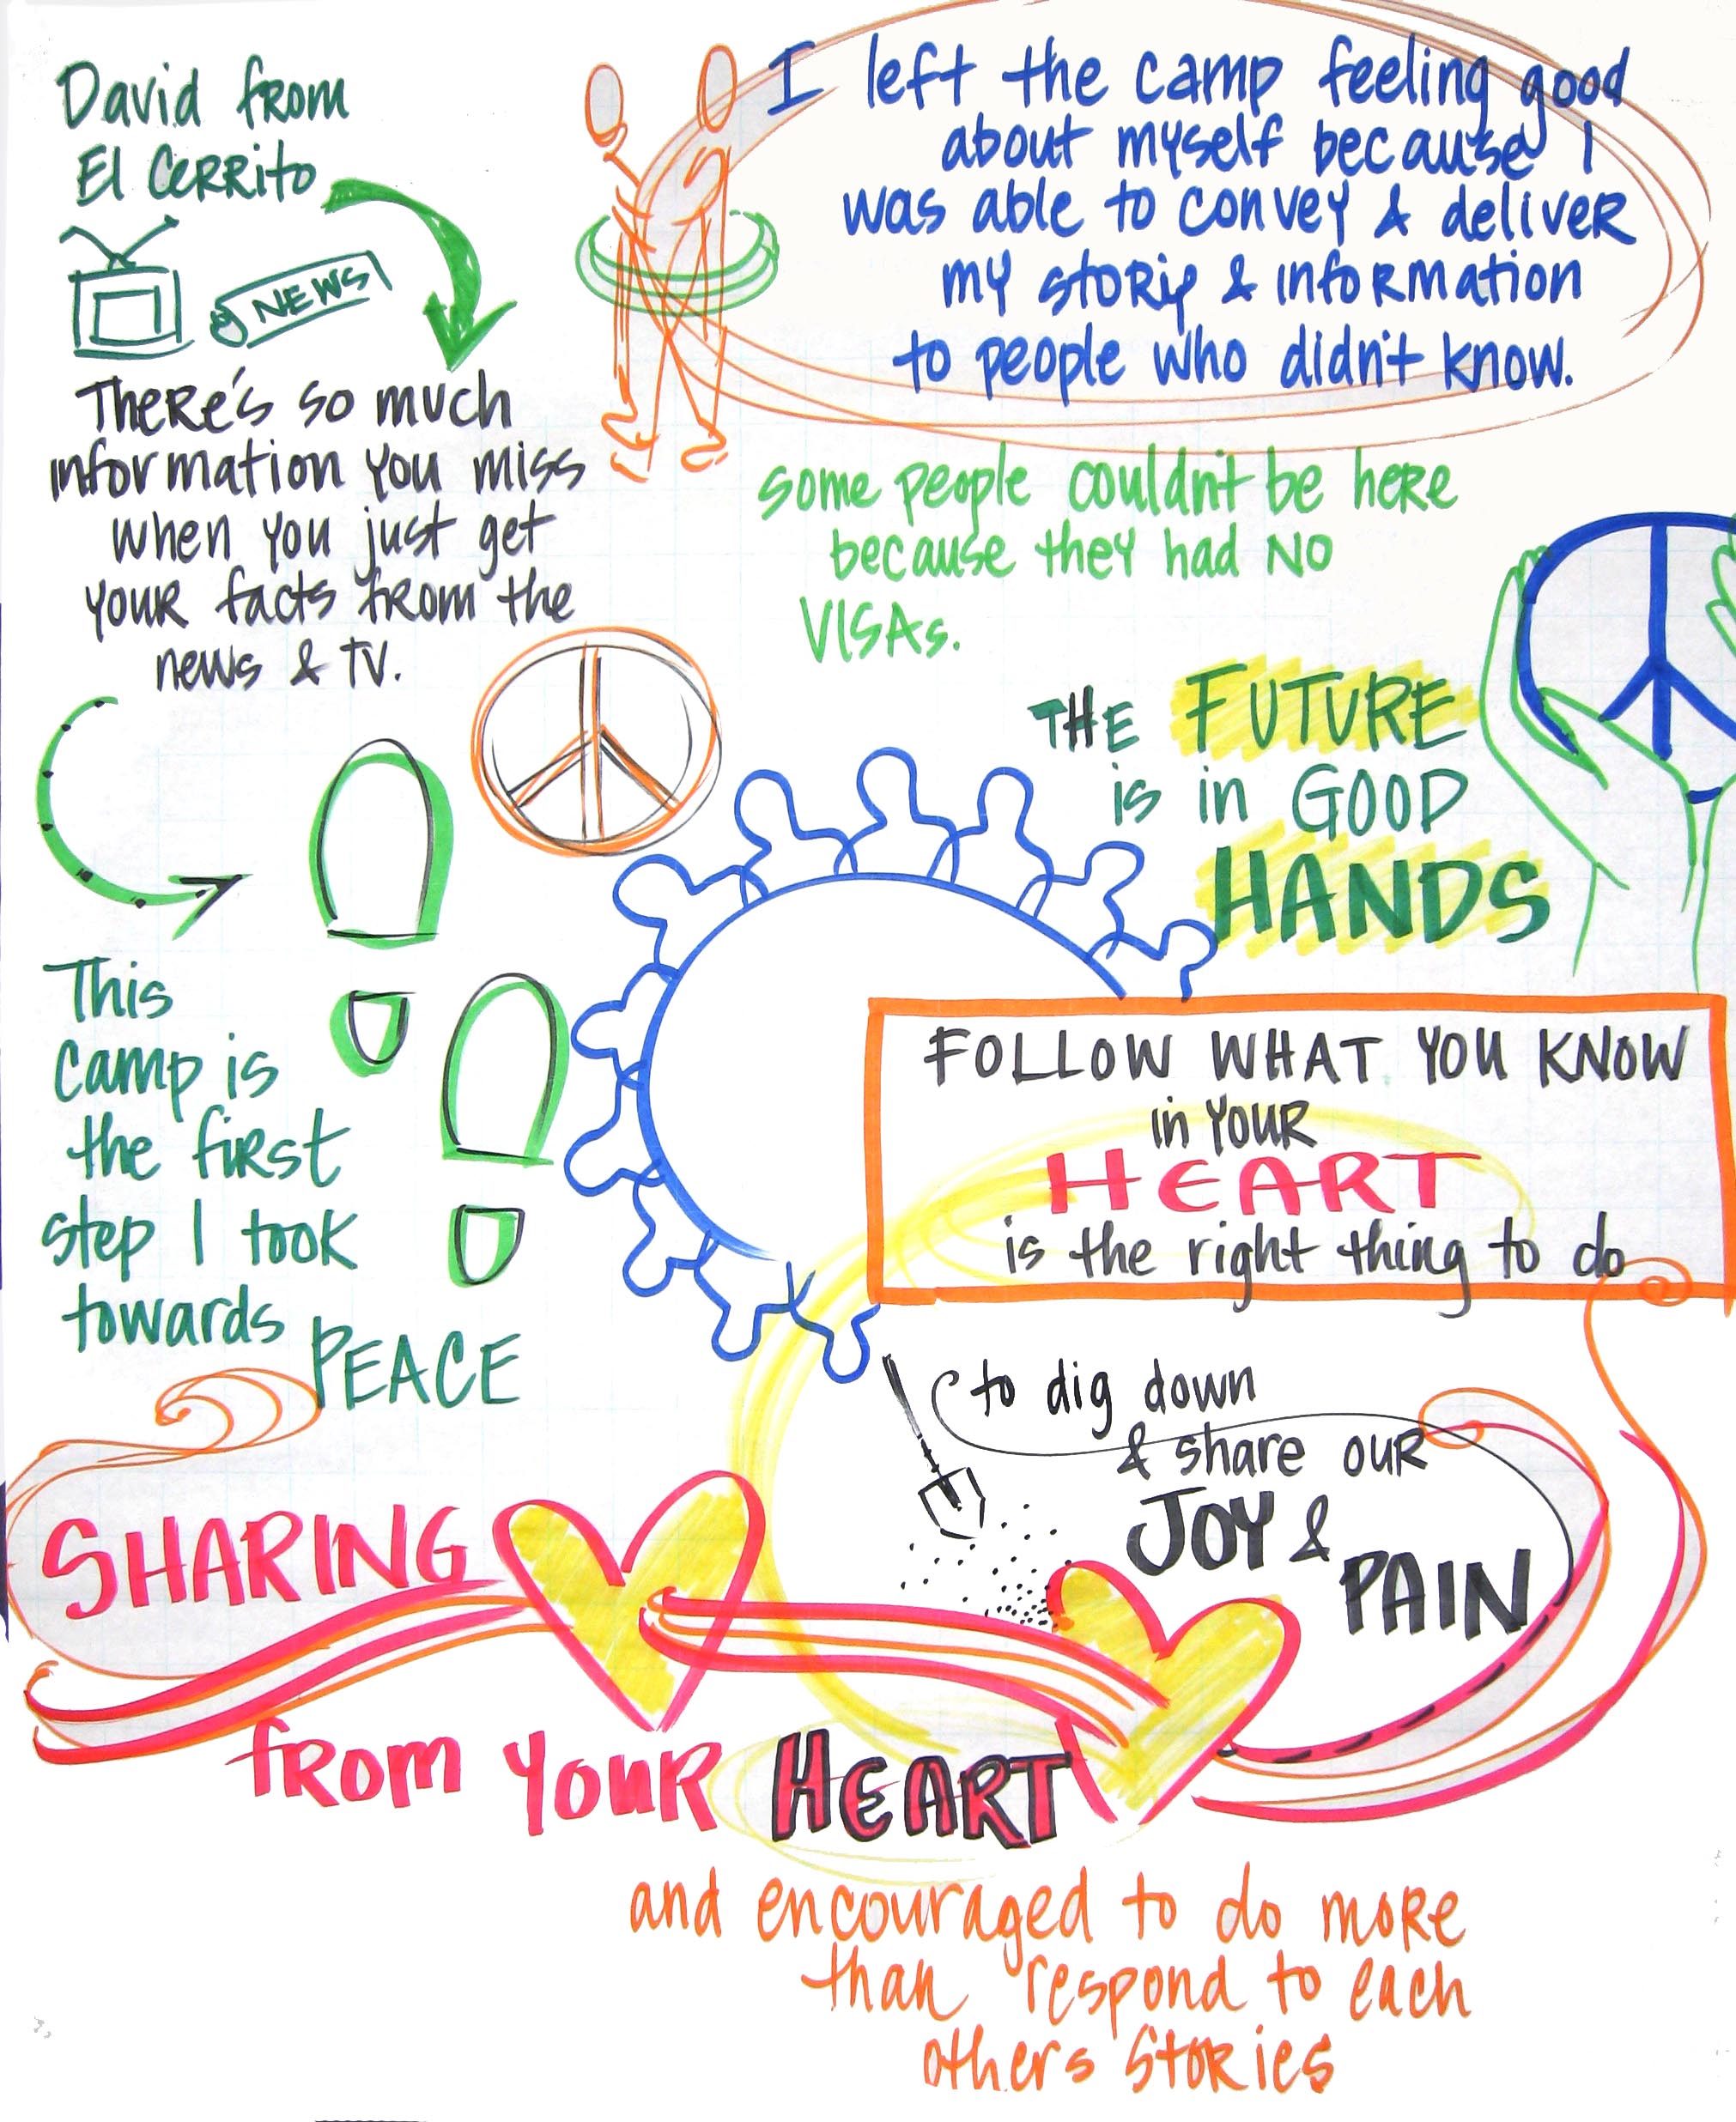 David from
El Cerrito
NEWS
There's so much
information you miss
when you just get
your facts from the
news & TV.
This
camp is
the first
step I took
towards
PEACE
I left the camp feeling good
about myself because I
was able to convey & deliver
my story & information
to people who didn't know.
some people couldn't be here
because they had NO
VISAs.
THE FUTURE
is in GOOD
HANDS
FOLLOW WHAT YOU KNOW
in YOUR
HEART
is the right thing to do
to dig down
& share our
JOY &
PAIN
SHARING
from your HEART
and encouraged to do more
than respond to each
others stories